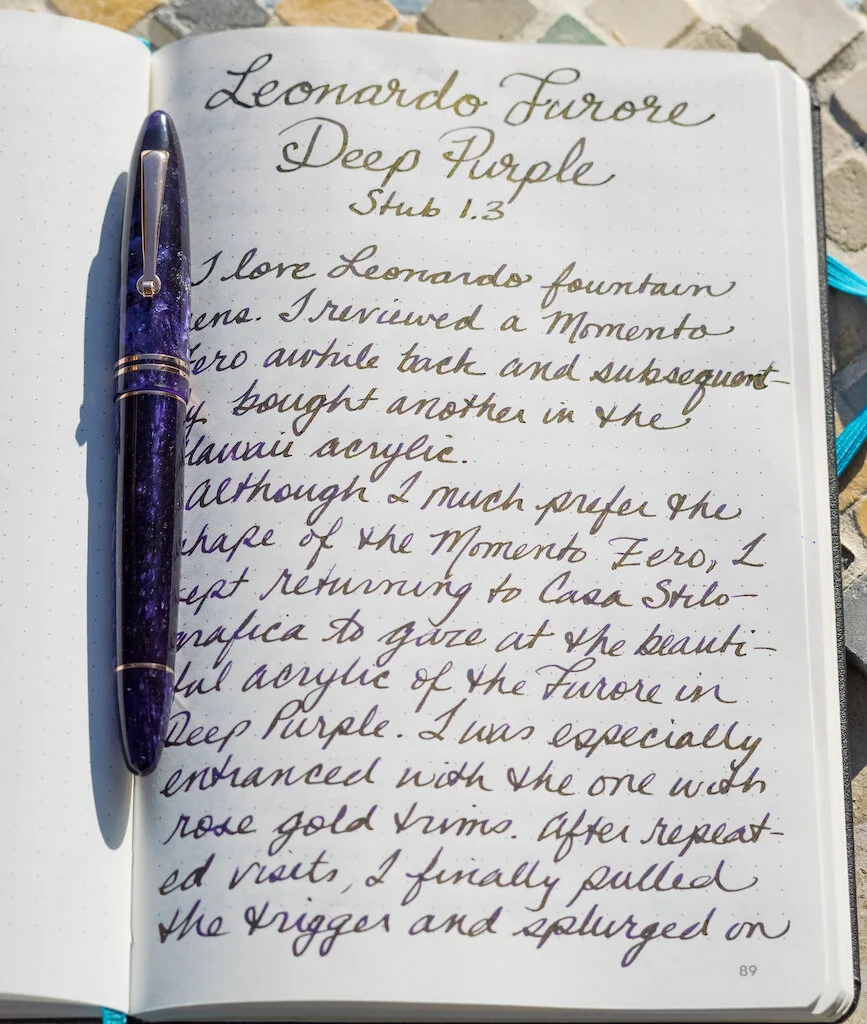 Leonardo Furore
Deep Purple
Stub 1.3
I love Leonardo fountain
ens. I reviewed a Momento
Zero awhile back and subsequent-
y bought another in the
Hawaii acrylic.
Although I much prefer the
shape of the Momento Zero, I
kept returning to Casa Stilo-
grafica to gaze at the beauti-
ful acrylic of the Furore in
Deep Purple. I was especially
entranced with the one with
rose gold trims. After repeat-
ed visits, I finally pulled
the trigger and splurged on
89